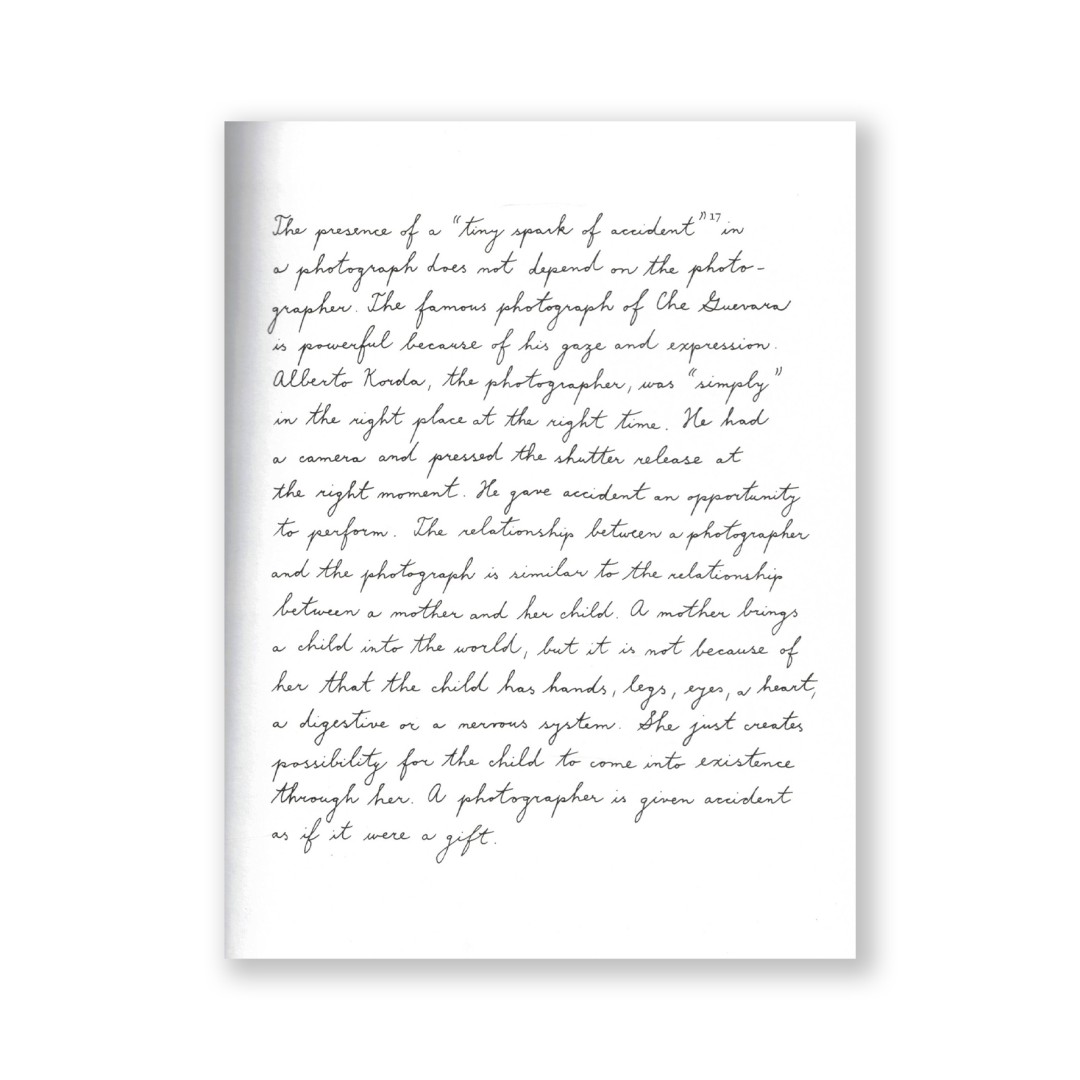 The presence of a “tiny spark of accident”17 in
a photograph does not depend on the photo-
grapher. The famous photograph of Che Guevara
is powerful because of his gaze and expression.
Alberto Korda, the photographer, was “simply”
in the right place at the right time. He had
a camera and pressed the shutter release at
the right moment. He gave accident an opportunity
to perform. The relationship between a photographer
and the photograph is similar to the relationship
between a mother and her child. A mother brings
a child into the world, but it is not because of
her that the child has hands, legs, eyes, a heart,
a digestive or a nervous system. She just creates
possibility for the child to come into existence
through her. A photographer is given accident
as if it were a gift.